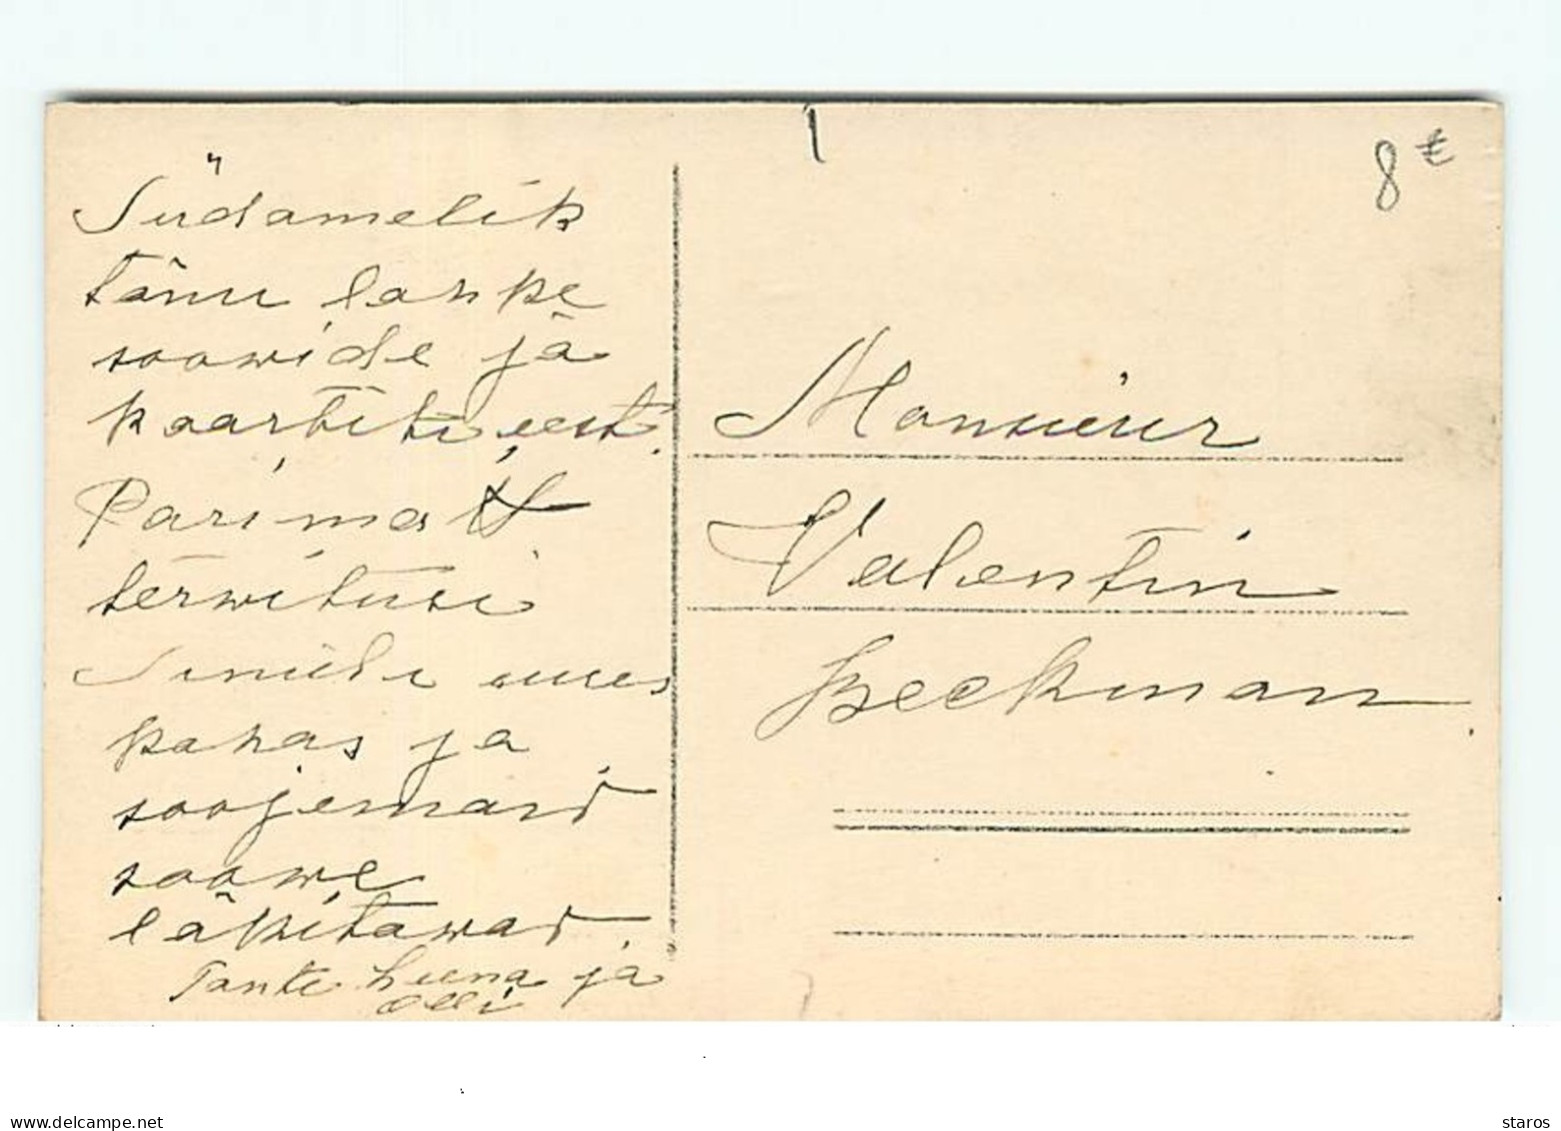 Südamelik
tänu lahke
soowide ja
kaartiti eest.
Parimaid
terwitusi
Sinule uues
kahas ja
soojemaid
soowe
läkitawad.
Tante Leena ja
Olli
8€
Monsieur
Valentin
Beekman.
www.delcampe.net
staros